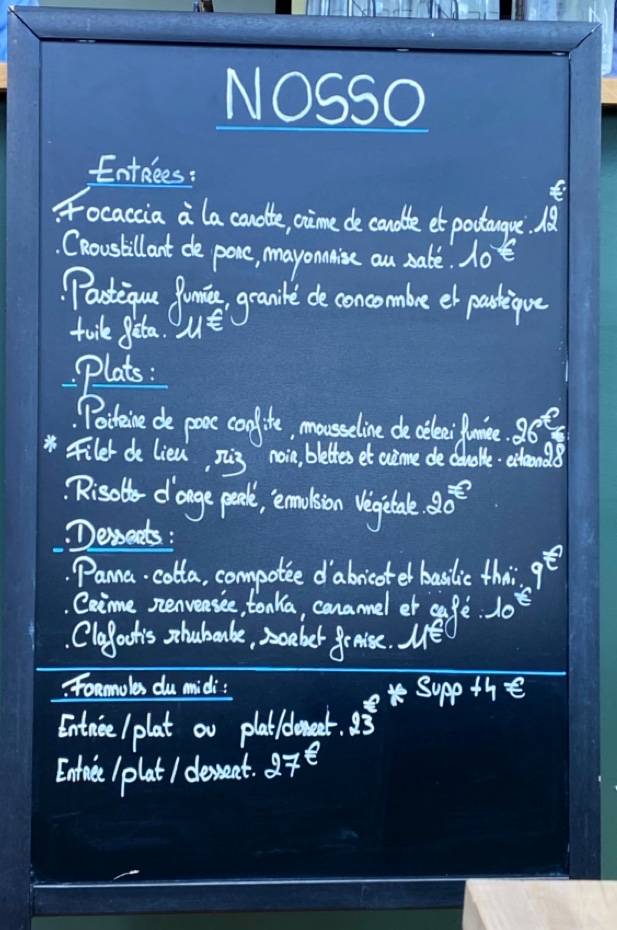 NOSSO
Entrées :
. Focaccia à la carotte, crème de carotte et poutargue . 12 €
. Croustillant de porc, mayonnaise au saté . 10 €
. Pastèque fumée, granité de concombre et pastèque
tuile féta . 11 €
. Plats :
. Poitrine de porc confite, mousseline de céleri fumée . 26 €
* Filet de lieu, riz noir, blettes et crème de carotte - citron 28 €
. Risotto d'orge perlé, émulsion végétale . 20 €
. Desserts :
. Panna - cotta, compotée d'abricot et basilic thaï . 9 €
. Crème renversée, tonka, caramel et café . 10 €
. Clafoutis rhubarbe, sorbet fraise . 11 €
. Formules du midi :
* Supp +4 €
Entrée / plat ou plat/dessert . 23 €
Entrée / plat / dessert . 27 €